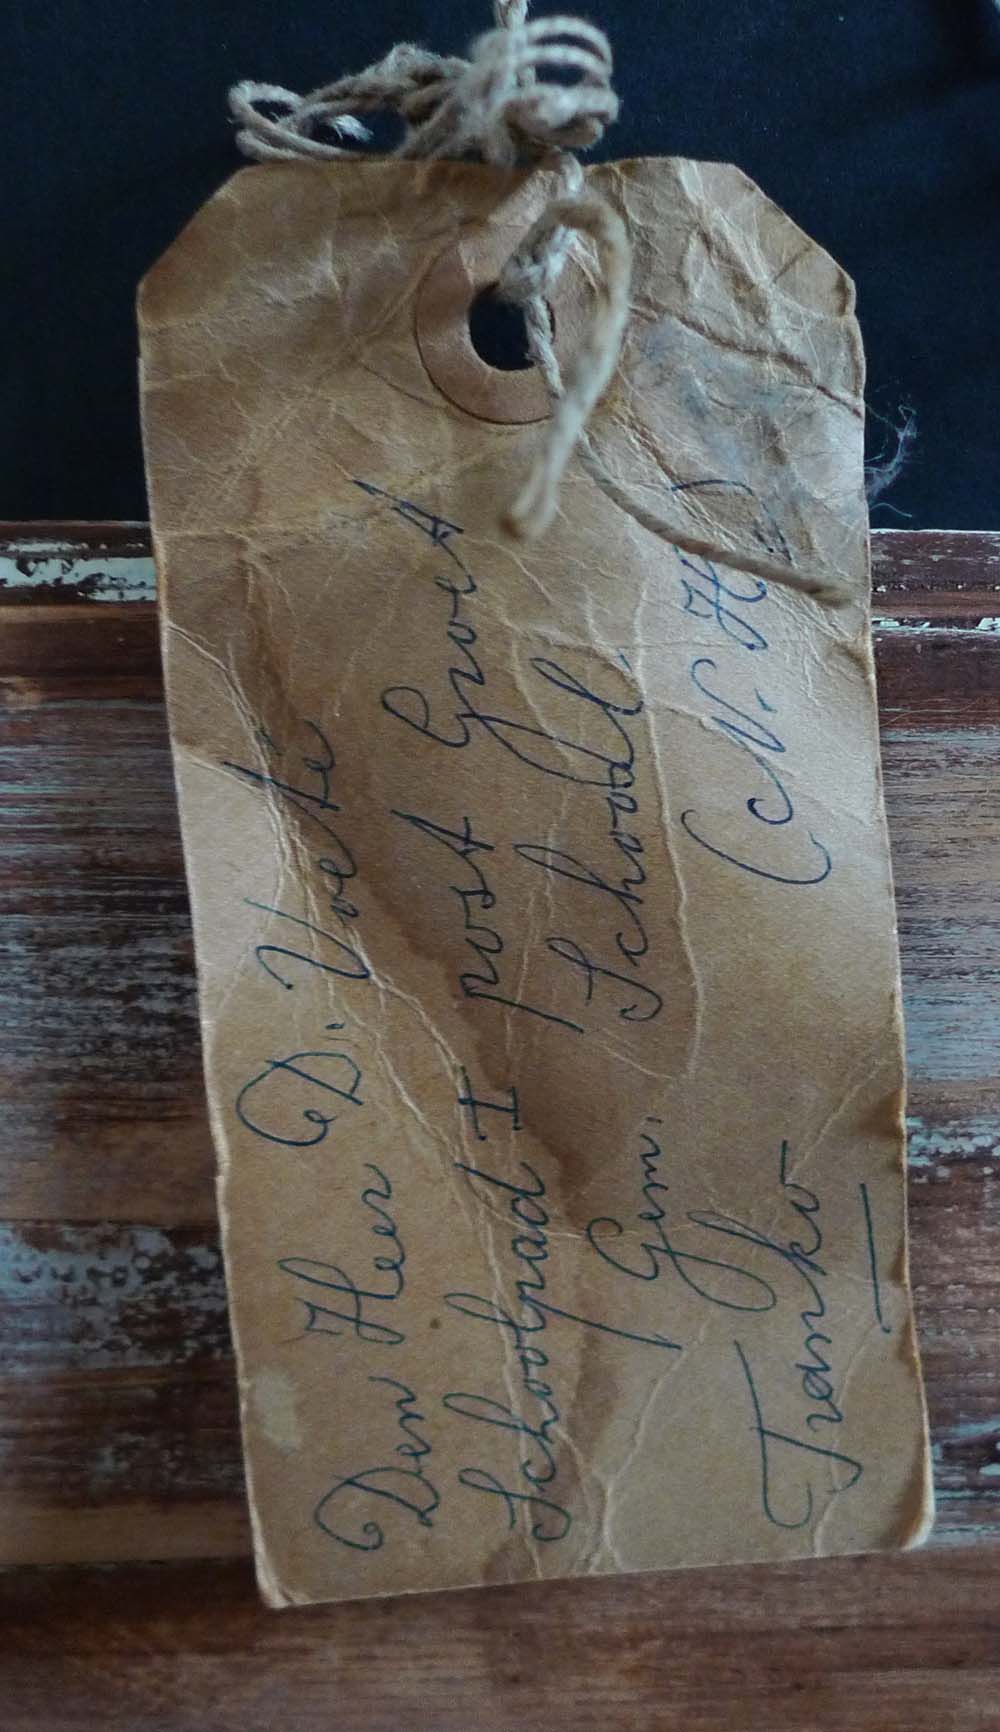 Den Heer D. Voete
Schoolpad I post Groet
Gem. Schoorl
Franko (N.H.)